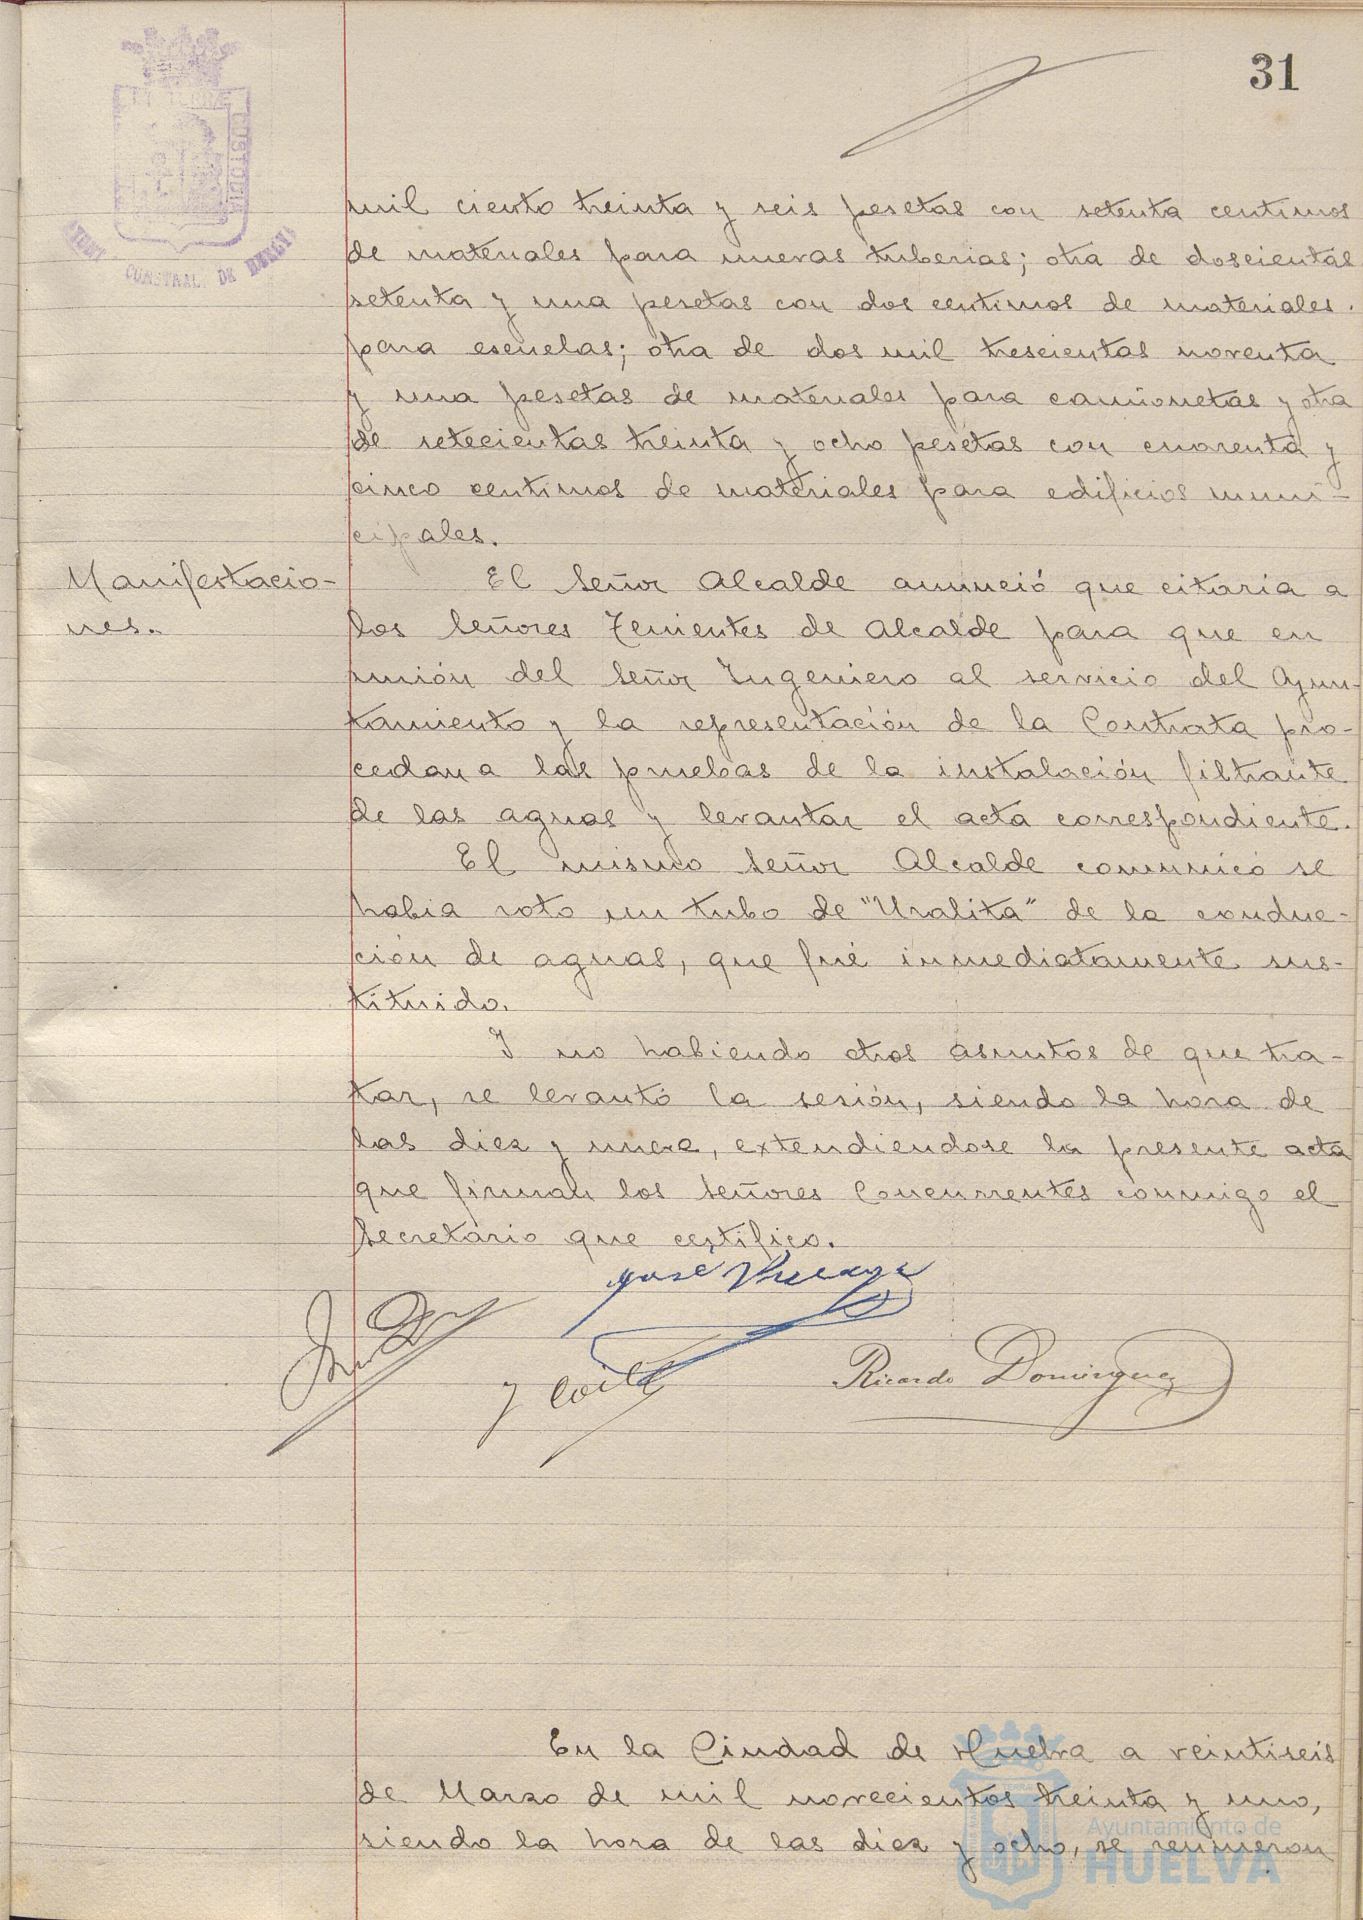 31
mil ciento treinta y seis pesetas con setenta centimos
de materiales para nuevas tuberias; otra de doscientas
setenta y una pesetas con dos centimos de materiales
para escuelas; otra de dos mil trescientas noventa
y una pesetas de materiales para camionetas y otra
de setecientas treinta y ocho pesetas con cuarenta y
cinco centimos de materiales para edificios muni-
cipales.
Manifestacio-
nes.
El Señor Alcalde anunció que citaría a
los Señores Tenientes de Alcalde para que en
unión del Señor Ingeniero al servicio del Ayun-
tamiento y la representación de la Contrata pro-
cedan a las pruebas de la instalación filtrante
de las aguas y levantar el acta correspondiente.
El mismo Señor Alcalde comunicó se
habia roto un tubo de "Uralita" de la conduc-
ción de aguas, que fué inmediatamente sus-
tituido.
Y no habiendo otros asuntos de que tra-
tar, se levantó la sesión, siendo la hora de
las diez y nueve, extendiendose la presente acta
que firman los Señores Concurrentes conmigo el
Secretario que certifico.
José
Ricardo Dominguez
En la Ciudad de Huelva a veintiseis
de Marzo de mil novecientos treinta y uno,
siendo la hora de las diez y ocho, se reunieron
CUSTODIA
CONSTNAL. DE HUELVA
Ayuntamiento de
HUELVA